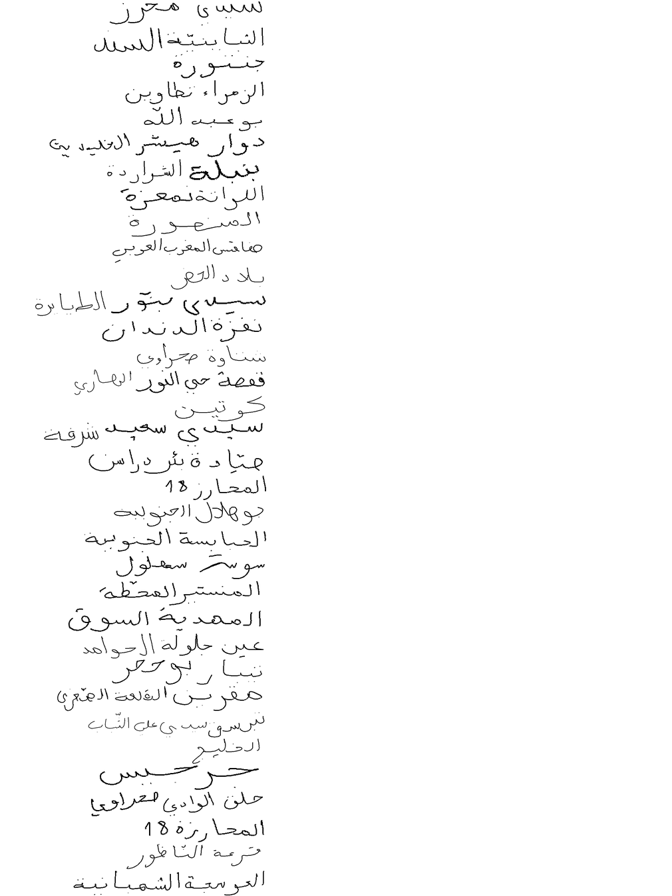 سيدي محرز
الشابنيّة السند
جننورة
الزهراء تطاوين
بو عبد الله
دوار هيشر الخليديين
بنبلة الشراردة
اللرانة نمعزة
المنصورة
صفاقس المغرب العربي
بلاد الحضر
سيدي بنّور الطيايرة
نفزة الدندان
شناوة صحراوي
قفصة حي النور الهاري
كوتين
سيدي سعيد شرفة
صيّادة بئر دراسن
المحارزة 18
بوهلال الجنوبية
الحبايسة الجنوبية
سوسة سهلول
المنستير المحطّة
المهدية السوق
عين جلولة الحوامد
نيبار بوحجر
مقرين القلعة الصغرى
تبرسق سيدي علي الشباب
الخليج
جرجيس
حلق الوادي صحراوي
المحارزة 18
ترعة الناظور
العوسجة الشمبانية